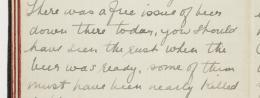 There was a free issue of beer
down there today, you should
have seen the rush when the
beer was ready, some of them
must have been nearly killed